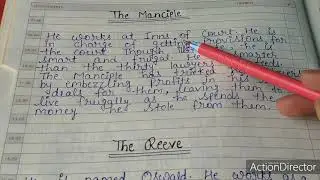 The Manciple
He works at Inns of Court. He is
in charge of getting provisions for
the court Though he is
smart and frugal. He smarter
than the thirty lawyers he feeds
The Manciple has tricked
by embezzling profits in his
deals for them, leaving them to
live frugally as he spends the
money he stole from them.
The Reeve
is named Oswald. He works as a
ActionDirector